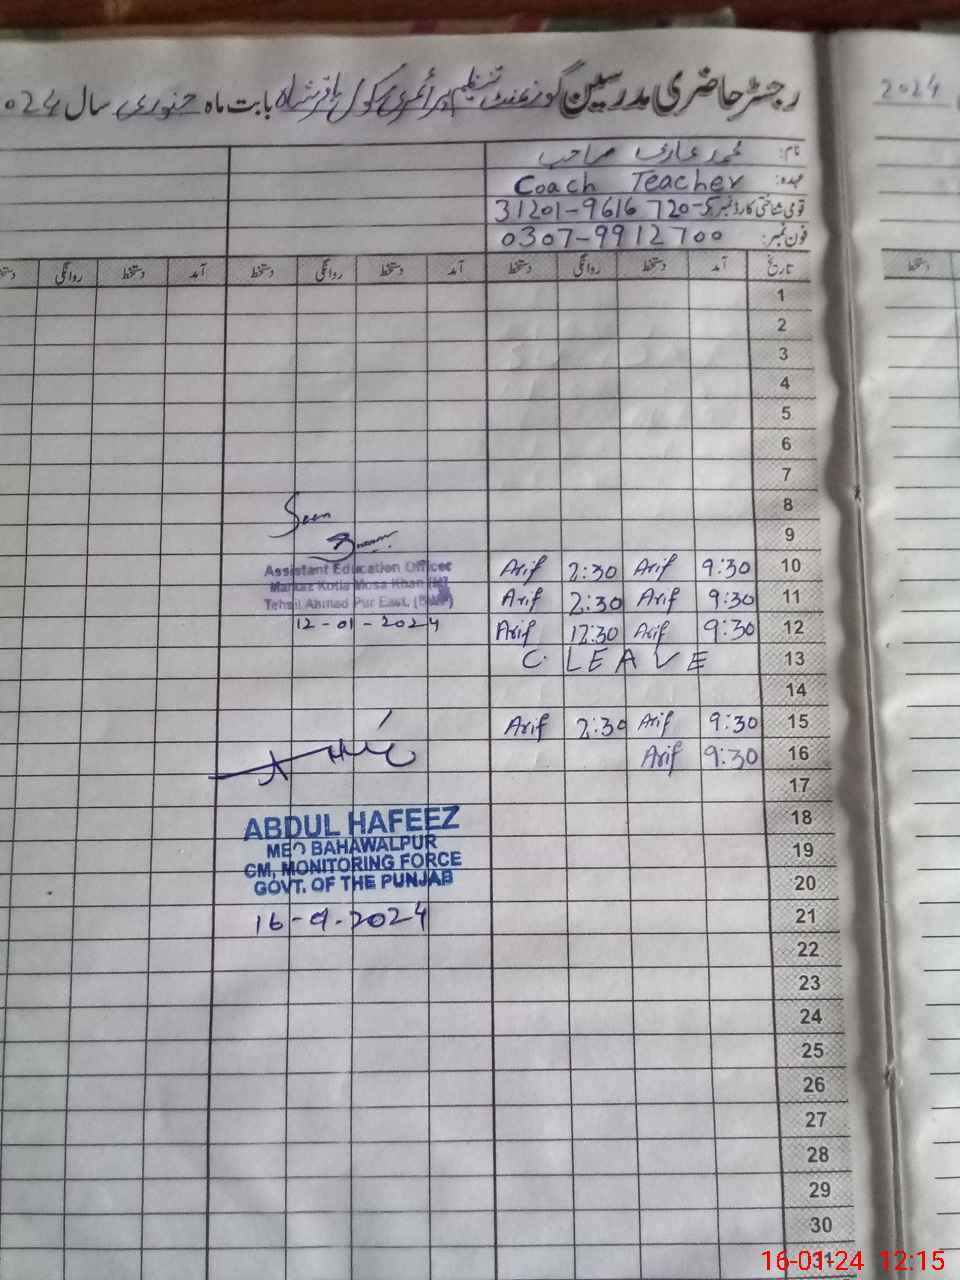 رجسٹر حاضری مدرسین گورنمنٹ تنظیم پرائمری سکول باقر شاہ بابت ماہ جنوری سال 024
2024
نام: محمد عارف صاحب
عہدہ: Coach Teacher
قومی شناختی کارڈ نمبر: 31201-9616720-5
فون نمبر: 0307-9912700
تاریخ آمد دستخط روانگی دستخط آمد دستخط روانگی دستخط آمد دستخط روانگی
دستخط
1
2
3
4
5
6
7
8
Seen
9
10 9:30 Arif 2:30 Arif
Assistant Education Officer
11 9:30 Arif 2:30 Arif
Markaz Kotla Mosa Khan
Tehsil Ahmad Pur East,
12 9:30 Arif 12:30 Arif
12-01-2024
13 C. LEAVE
14
15 9:30 Arif 2:30 Arif
16 9:30 Arif
17
18
ABDUL HAFEEZ
19
MEO BAHAWALPUR
CM, MONITORING FORCE
20
GOVT. OF THE PUNJAB
21
16-01-2024
22
23
24
25
26
27
28
29
30
31
16-01-24 12:15